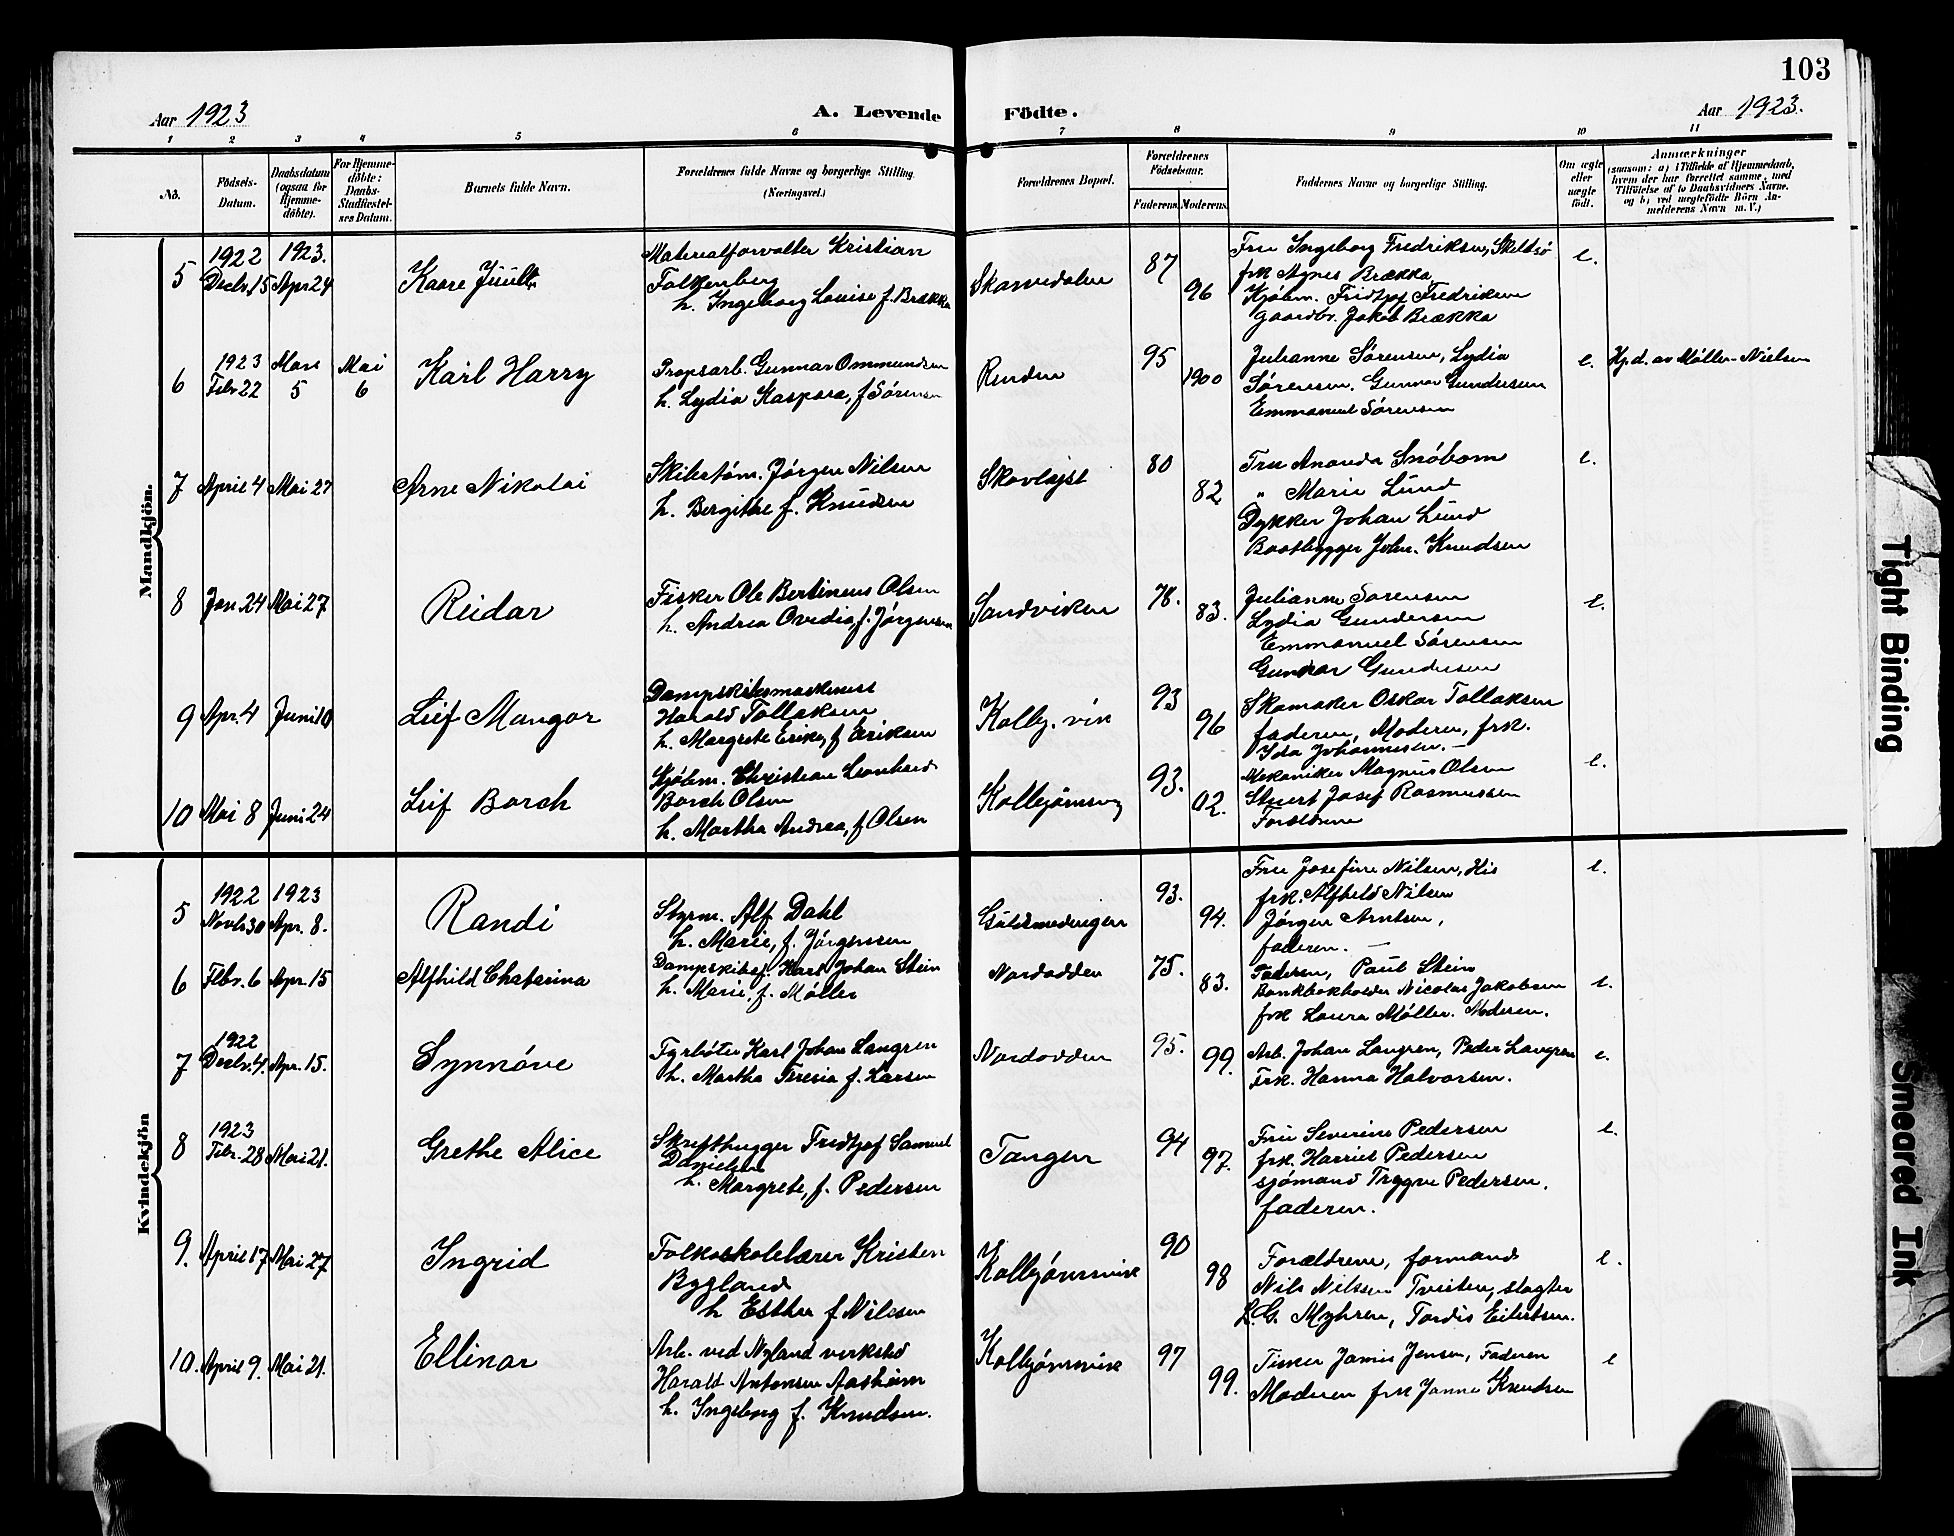 103
Aar 1923
A. Levende
Fódte.
Aar 1923.
1 2 3 4 5 6 7 8 9 10 11
No.
Födsels-
Datum.
Daabsdatum
(ogsaa for
Hjemme-
döbte).
For Hjemme-
döbte:
Daabs-
Stadfæstel-
ses Datum.
Barnets fulde Navn.
Forældrenes fulde Navne og borgerlige Stilling.
(Næringsvei.)
Forældrenes Bopæl.
Forældrenes
Födselsaar.
Faderens
Moderens
Faddernes Navne og borgerlige Stilling.
Om ægte
eller
uægte
födt.
Anmærkninger
(saasom: a) i Tilfælde af Hjemmedaab,
hvem der har forrettet samme, med
Tilföielse af to Daabsvidners Navne,
og b) ved uægtefödte Börn An-
melderens Navn m. V.)
Mandkjön.
5
1922
Decbr. 15
1923.
Apr 24
Kaare Juult
Materialforvalter Kristian
Falkenberg
h. Ingeborg Louise f. Brække
87
96
Fru Ingeborg Fredriksen, Skiltsø
frk Agnes Brække
Kjøbm. Fridtjof Fredriksen
gaardbr. Jakob Brække
e.
6
1923
Febr 22
Mars
5
Mai
6
Karl Harry
Propsarb. Gunnar Ommundsen
h. Lydia Kaspara, f Sørensen
Renden
95
1900
Julianne Sørensen, Lydia
Sørensen. Gunnar Gundersen
Emmanuel Sørensen
e.
Hj.d. av Møller-Nielsen
7
April 4
Mai 27
Arne Nikolai
Skibstøm. Jørgen Nilsen
h. Bergithe f. Knudsen
80
82
Fru Ananda Snøbom
" Marie Lund
Dykker Johan Lund
Baatbygger Johs. Knudsen
e.
8
Jan. 24
Mai 27
Reidar
Fisker Ole Bertineus Olsen
h. Andrea Ovidia, f. Jørgensen
Sandviken
78.
83.
Julianne Sørensen
Lydia Gundersen
Emmanuel Sørensen
Gunnar Gundersen
e.
9
Apr. 4
Juni 10
Leif Mangor
Dampskibsmaskinist
Harald Tollaksen
h. Margrete Erika, f Eriksen
Kolbj. vik
93
96
Skomaker Oskar Tollaksen
faderen, Moderen, frk.
Ida Johannesen. —
10
Mai 8
Juni 24
Leif Borch
Kjøbm. Christian Leonhard
Borch Olsen
h. Martha Andrea, f Olsen
93.
02.
Mekaniker Magnus Olsen
Stuert Josef Rasmussen
Forældrene
e.
Kvindekjön
5
1922
Novbr 30
1923
Apr. 8.
Randi
Styrm. Alf Dahl
h. Marie, f. Jørgensen
Guldsmedengen
93.
94.
Fru Josefine Nilsen, His
frk. Alfhild Nilsen
Jørgen Arntsen,
faderen. —
e.
6
Febr. 6
Apr. 15
Alfhild Chatarina
Dampskibsf. Karl Johan Stein
h. Marie, f. Møller
Nordodden
75.
83.
Faderen, Paul Stein
Bankbokholder Nicolai Jakobsen
frk Laura Møller. Moderen.
e.
7
1922
Decbr. 4.
Apr. 15.
Synnøve
Fyrbøter Karl Johan Langren
h. Martha Teresia f. Larsen
Nordodden
95.
99.
Arb. Johan Langren, Peder Langren
Frk. Hanna Halvorsen.
e.
8
1923
Febr. 28
Mai 21.
Grethe Alice
Skrifthugger Fridtjof Samuel
Danielsen
h. Margrete, f. Pedersen
Tangen
94
97.
Fru Severine Pedersen
frk. Harriet Pedersen
sjømand Trygve Pedersen.
faderen.
e.
9.
April 17
Mai 27
Ingrid
Folkeskolelærer Kristen
Bygland
h Esther f Nilssen
Kolbjørnsvik
90
98
Forældrene, formand
Nils Nilssen Tveiten, slagter
L. G. Myhren, Tordis Eilertsen.
e.
10.
April 9.
Mai 21.
Ellinor
Arb. ved Nyland verksted
Harald Antonsen Aasheim
h. Ingeborg f. Knudsen.
Kolbjørnsvik
97
99.
Fisker Jamis Jensen, Faderen
Moderen frk Janna Knudsen
e
Tight Binding
Smeared Ink